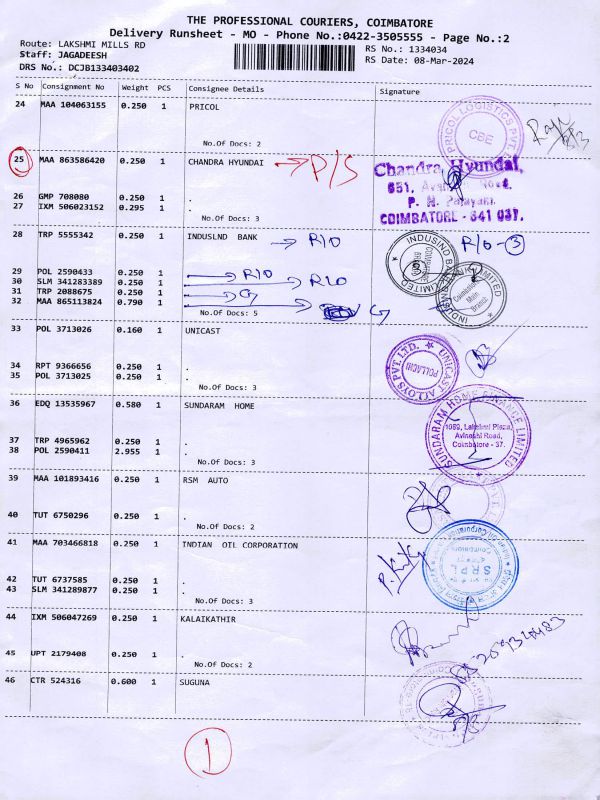 THE PROFESSIONAL COURIERS, COIMBATORE
Delivery Runsheet - MO - Phone No.:0422-3505555 - Page No.:2
Route: LAKSHMI MILLS RD
RS No.: 1334034
Staff: JAGADEESH
RS Date: 08-Mar-2024
DRS No.: DCJB133403402
S No Consignment No Weight PCS Consignee Details Signature
24 MAA 104063155 0.250 1 PRICOL
PRICOL LOGISTICS PVT.
CBE
No.Of Docs: 2
25 MAA 863586420 0.250 1 CHANDRA HYUNDAI P/S
Chandra Hyundai,
COIMBATORE - 641 037.
26 GMP 708080 0.250 1 .
27 IXM 506023152 0.295 1 .
No.Of Docs: 3
28 TRP 5555342 0.250 1 INDUSLND BANK R/O
R/O-3
29 POL 2590433 0.250 1 R/O
30 SLM 341283389 0.250 1 R/O
31 TRP 2088675 0.250 1 G
32 MAA 865113824 0.790 1 G
No.Of Docs: 5
33 POL 3713026 0.160 1 UNICAST
UNICAST ALLOYS PVT. LTD.
POLLACHI
34 RPT 9366656 0.250 1 .
35 POL 3713025 0.250 1 .
No.Of Docs: 3
36 EDQ 13535967 0.580 1 SUNDARAM HOME
SUNDARAM HOME FINANCE LIMITED
1089, Lakshmi Plaza,
Avinashi Road,
Coimbatore - 37.
37 TRP 4965962 0.250 1 .
38 POL 2590411 2.955 1 .
No.Of Docs: 3
39 MAA 101893416 0.250 1 RSM AUTO
40 TUT 6750296 0.250 1 .
No.Of Docs: 2
41 MAA 703466818 0.250 1 INDIAN OIL CORPORATION
SRPL
42 TUT 6737585 0.250 1 .
43 SLM 341289877 0.250 1 .
No.Of Docs: 3
44 IXM 506047269 0.250 1 KALAIKATHIR
45 UPT 2179408 0.250 1 .
No.Of Docs: 2
46 CTR 524316 0.600 1 SUGUNA
1